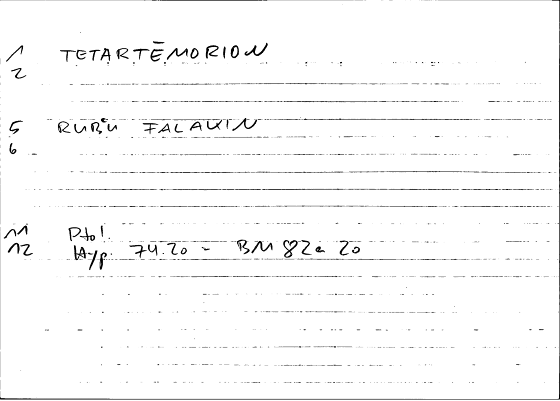 1 TETARTĒMORION
2
5 RUBʿU FALAKIN
6
11 Ptol.
12 Hyp. 74.20 - BM 82a 20